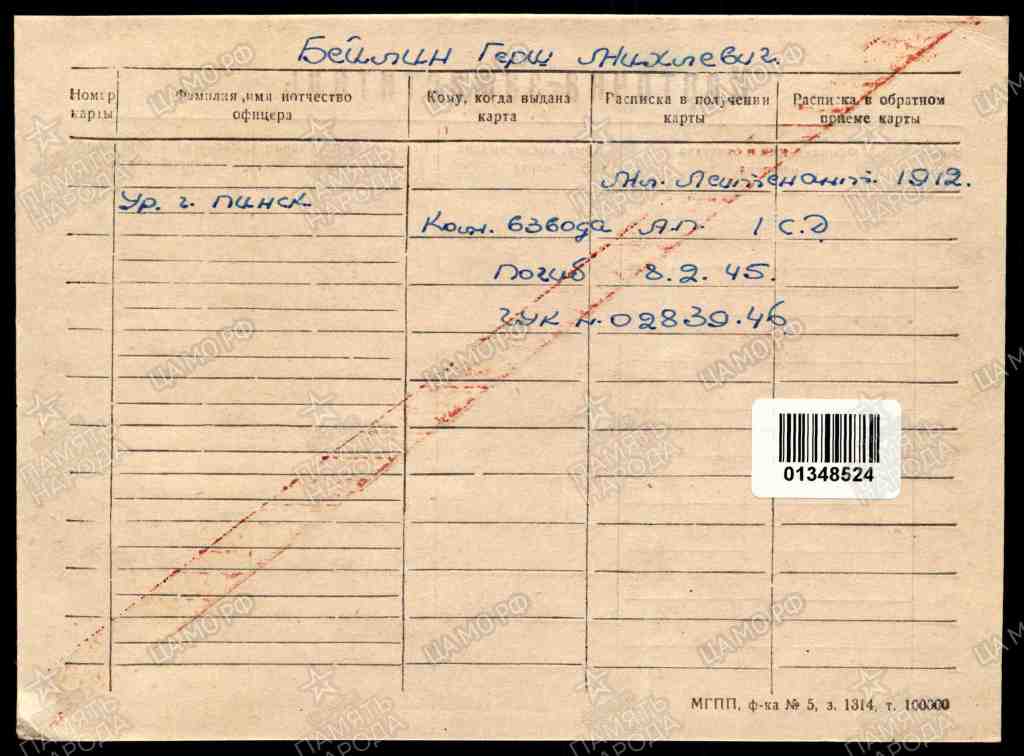 Бейлин Герш Михлевич.
Номер карты
Фамилия, имя и отчество офицера
Кому, когда выдана карта
Расписка в получении карты
Расписка в обратном приеме карты
Мл. Лейтенант. 1912.
Ур. г. Пинск.
Ком. взвода АП. 1 СД
погиб 8.2.45.
ГУК н. 02839.46
01348524
МГПП, ф-ка № 5, з. 1314, т. 100000
ЦАМО РФ
ПАМЯТЬ НАРОДА